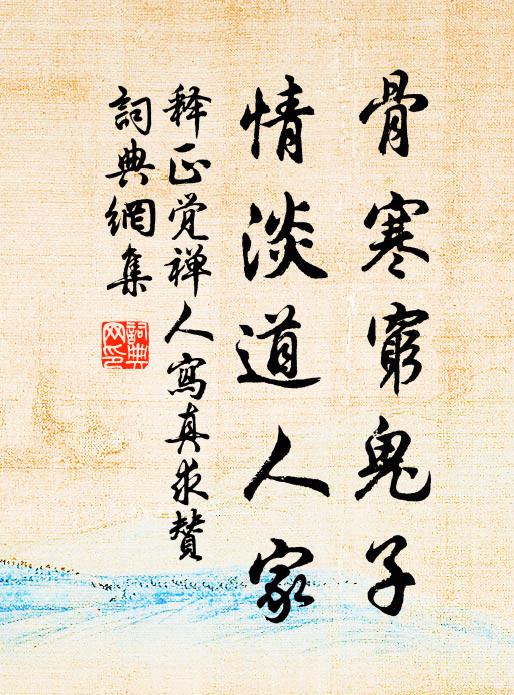 骨寒窮鬼子
情淡道人家
释正觉禅人寫真求賛
詞典網集
詞典
网印